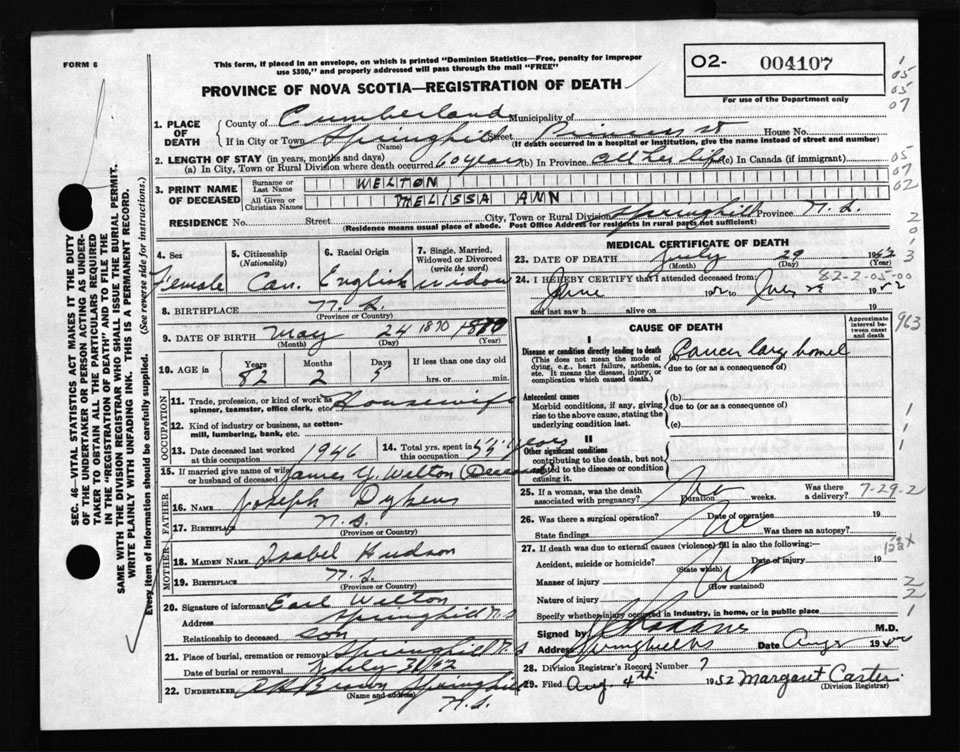 FORM 6
This form, if placed in an envelope, on which is printed "Dominion Statistics—Free, penalty for improper
use $300," and properly addressed will pass through the mail "FREE"
PROVINCE OF NOVA SCOTIA—REGISTRATION OF DEATH
O2- 004107
For use of the Department only
1. PLACE OF DEATH
County of Cumberland Municipality of
If in City or Town Springhill Street Princess St House No.
(Name) (If death occurred in a hospital or institution, give the name instead of street and number)
2. LENGTH OF STAY (in years, months and days)
(a) In City, Town or Rural Division where death occurred 60 years (b) In Province all her life (c) In Canada (if immigrant)
3. PRINT NAME OF DECEASED
Surname or Last Name WELTON
All Given or Christian Names MELISSA ANN
RESIDENCE No. Street City, Town or Rural Division Springhill Province N.S.
(Residence means usual place of abode. Post Office Address for residents in rural parts not sufficient)
4. Sex Female
5. Citizenship (Nationality) Can.
6. Racial Origin English
7. Single, Married, Widowed or Divorced (write the word) widow
8. BIRTHPLACE N.S.
(Province or Country)
9. DATE OF BIRTH May 24 1870 1870
(Month) (Day) (Year)
10. AGE in Years 82 Months 2 Days 5 If less than one day old
hrs. or min.
OCCUPATION
11. Trade, profession, or kind of work as spinner, teamster, office clerk, etc. Housewife
12. Kind of industry or business, as cotton-mill, lumbering, bank, etc.
13. Date deceased last worked at this occupation 1946
14. Total yrs. spent in this occupation 55 years
15. If married give name of wife or husband of deceased James Y. Welton Deceased
FATHER
16. NAME Joseph Dykens
17. BIRTHPLACE N.S.
(Province or Country)
MOTHER
18. MAIDEN NAME Isabel Hudson
19. BIRTHPLACE N.S.
(Province or Country)
20. Signature of informant Earl Welton
Address Springhill N.S
Relationship to deceased Son
21. Place of burial, cremation or removal Springhill N.S
Date of burial or removal July 31/52
22. UNDERTAKER Brown Springhill
(Name and address) N.S.
MEDICAL CERTIFICATE OF DEATH
23. DATE OF DEATH July 29 1952
(Month) (Day) (Year)
82-2-05-00
24. I HEREBY CERTIFY that I attended deceased from:
June 1952 to July 29 1952
and last saw h alive on
CAUSE OF DEATH
Approximate interval between onset and death
I
Disease or condition directly leading to death
(This does not mean the mode of dying, e.g., heart failure, asthenia, etc. It means the disease, injury, or complication which caused death.)
Cancer large bowel
due to (or as a consequence of)
Antecedent causes
Morbid conditions, if any, giving rise to the above cause, stating the underlying condition last.
(b)
due to (or as a consequence of)
(c)
II
Other significant conditions
contributing to the death, but not related to the disease or condition causing it.
25. If a woman, was the death associated with pregnancy? No Duration weeks. Was there a delivery? 7-29-2
26. Was there a surgical operation? No Date of operation 19
State findings Was there an autopsy?
27. If death was due to external causes (violence) fill in also the following:
Accident, suicide or homicide? Date of injury 19
(State which)
Manner of injury
(How sustained)
Nature of injury
Specify whether injury occurred in industry, in home, or in public place
Signed by M.D.
Address Springhill NS Date Aug 1952
28. Division Registrar's Record Number 7
29. Filed Aug. 4th 1952 Margaret Carter
(Division Registrar)
1
05
05
07
05
07
02
2
0
1
3
963
1
1
1
2
2
1
SEC. 46—VITAL STATISTICS ACT MAKES IT THE DUTY
OF THE UNDERTAKER OR PERSON ACTING AS UNDER-
TAKER TO OBTAIN ALL THE PARTICULARS REQUIRED
IN THE "REGISTRATION OF DEATH" AND TO FILE THE
SAME WITH THE DIVISION REGISTRAR WHO SHALL ISSUE THE BURIAL PERMIT.
WRITE PLAINLY WITH UNFADING INK. THIS IS A PERMANENT RECORD.
Every item of information should be carefully supplied. (See reverse side for instructions.)